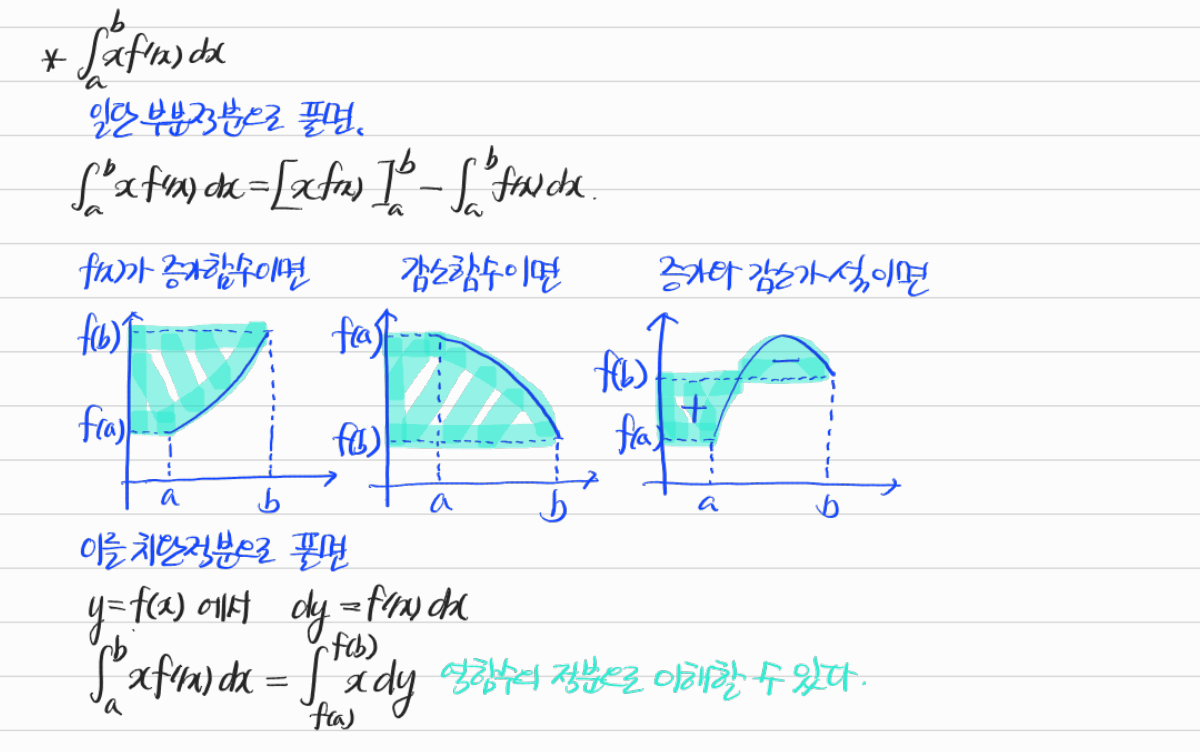 * ∫_a^b xf'(x) dx
일단 부분적분으로 풀면,
∫_a^b x f'(x) dx = [x f(x)]_a^b - ∫_a^b f(x) dx.
f(x)가 증가함수이면 감소함수이면 증가와 감소가 섞이면
f(b) f(a) a b
f(a) f(b) a b
f(b) f(a) + - a b
이를 치환적분으로 풀면
y = f(x) 에서 dy = f'(x) dx
∫_a^b x f'(x) dx = ∫_{f(a)}^{f(b)} x dy 역함수의 적분으로 이해할 수 있다.